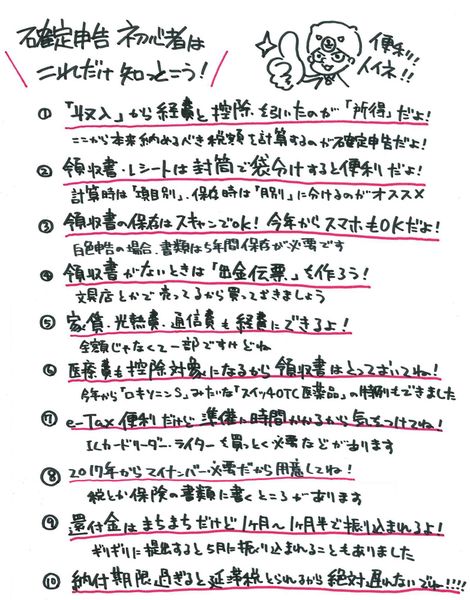 確定申告 初心者は
これだけ知っとこう!
便利!
イイネ!!
① 「収入」から経費と控除を引いたのが「所得」だよ!
ここから本来納めるべき税額を計算するのが確定申告だよ!
② 領収書・レシートは封筒で袋分けすると便利だよ!
計算時は「項目別」、保存時は「月別」に分けるのがオススメ
③ 領収書の保存はスキャンでOK! 今年からスマホもOKだよ!
白色申告の場合、書類は5年間保存が必要です
④ 領収書がないときは「出金伝票」を作ろう!
文具店とかで売ってるから買っておきましょう
⑤ 家賃・光熱費・通信費も経費にできるよ!
全額じゃなくて一部ですけどね
⑥ 医療費も控除対象になるから領収書はとっておいてね!
今年から「ロキソニンS」みたいな「スイッチOTC医薬品」の特例もできました
⑦ e-Tax 便利だけど準備に時間かかるから気をつけてね!
ICカードリーダー・ライターも買っとく必要などがあります
⑧ 2017年からマイナンバー必要だから用意してね!
税とか保険の書類に書くところがあります
⑨ 還付金はまちまちだけど1ヶ月〜1ヶ月半で振り込まれるよ!
ギリギリに提出すると5月に振り込まれることもありました
⑩ 納付期限過ぎると延滞税とられるから絶対遅れないでね!!!!